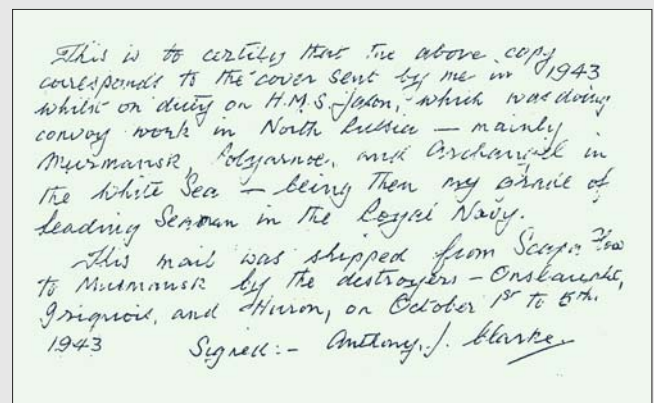 This is to certify that the above copy
corresponds to the cover sent by me in 1943
whilst on duty on H.M.S. Jason, which was doing
convoy work in North Russia — mainly
Murmansk, Polyarnoe, and Archangel in
the White Sea — being then my grade of
Leading Seaman in the Royal Navy.
This mail was shipped from Scapa Flow
to Murmansk by the destroyers — Onslaught,
Iriquois, and Huron, on October 1st to 5th.
1943 Signed:- Anthony. J. Clarke.